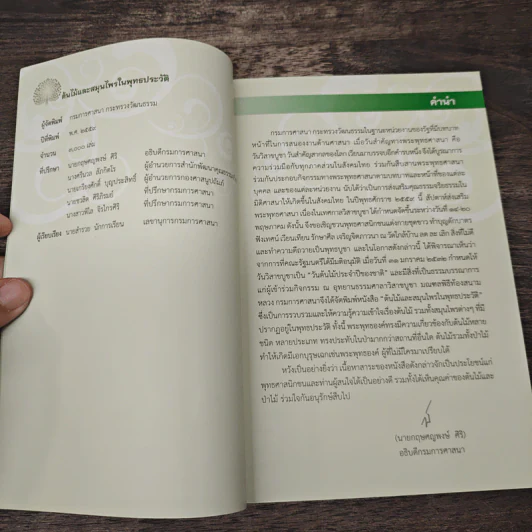 ต้นไม้และสมุนไพรในพุทธประวัติ
ผู้จัดพิมพ์ กรมการศาสนา กระทรวงวัฒนธรรม
ปีที่พิมพ์ พ.ศ. ๒๕๕๙
จำนวน ๓,๐๐๐ เล่ม
ที่ปรึกษา นายกฤษศญพงษ์ ศิริ อธิบดีกรมการศาสนา
นางศรีนวล ลัภกิตโร ผู้อำนวยการสำนักพัฒนาคุณธรรม
นายเกรียงศักดิ์ บุญประสิทธิ์ ผู้อำนวยการกองศาสนูปถัมภ์
นายชวลิต ศิริภิรมย์ ที่ปรึกษากรมการศาสนา
นางสาวพิไล จิรไกรศิริ ที่ปรึกษากรมการศาสนา
ผู้เรียบเรียง นายสำรวย นักการเรียน เลขานุการกรมการศาสนา
คำนำ
กรมการศาสนา กระทรวงวัฒนธรรมในฐานะหน่วยงานของรัฐที่มีบทบาท
หน้าที่ในการสนองงานด้านศาสนา เมื่อวันสำคัญทางพระพุทธศาสนา คือ
วันวิสาขบูชา วันสำคัญสากลของโลก เวียนมาบรรจบอีกคำรบหนึ่ง จึงได้บูรณาการ
ความร่วมมือกับทุกภาคส่วนในสังคมไทย ร่วมกันสืบสานพระพุทธศาสนา
ร่วมกันประกอบกิจกรรมทางพระพุทธศาสนาตามบทบาทและหน้าที่ของแต่ละ
บุคคล และของแต่ละหน่วยงาน นับได้ว่าเป็นการส่งเสริมคุณธรรมจริยธรรมใน
มิติศาสนา ให้เกิดขึ้นในสังคมไทย ในปีพุทธศักราช ๒๕๕๙ นี้ สัปดาห์ส่งเสริม
พระพุทธศาสนา เนื่องในเทศกาลวิสาขบูชา ได้กำหนดจัดขึ้นระหว่างวันที่ ๑๔-๒๐
พฤษภาคม ดังนั้น จึงขอเชิญชวนพุทธศาสนิกชนแต่งกายชุดขาว ทำบุญตักบาตร
ฟังเทศน์ เวียนเทียน รักษาศีล เจริญจิตภาวนา ณ วัดใกล้บ้าน ลด ละ เลิก สิ่งที่ไม่ดี
และทำความดีถวายเป็นพุทธบูชา และในโอกาสดังกล่าวนี้ ได้พิจารณาเห็นว่า
จากการที่คณะรัฐมนตรีได้มีมติอนุมัติ เมื่อวันที่ ๓๑ มกราคม ๒๕๓๒ กำหนดให้
วันวิสาขบูชาเป็น “วันต้นไม้ประจำปีของชาติ” และมีสิ่งที่เป็นธรรมบรรณาการ
แก่ผู้เข้าร่วมกิจกรรม ณ อุทยานธรรมศาลาวิสาขบูชา มณฑลพิธีท้องสนาม
หลวง กรมการศาสนาจึงได้จัดพิมพ์หนังสือ “ต้นไม้และสมุนไพรในพุทธประวัติ”
ซึ่งเป็นการรวบรวมและให้ความรู้ความเข้าใจเรื่องต้นไม้ รวมทั้งสมุนไพรต่างๆ ที่มี
ปรากฏอยู่ในพุทธประวัติ ทั้งนี้ พระพุทธองค์ทรงมีความเกี่ยวข้องกับต้นไม้หลาย
ชนิด หลายประเภท ทรงประทับในป่ามากกว่าสถานที่อื่นใด ต้นไม้รวมทั้งป่าไม้
ทำให้เกิดมีเอกบุรุษเฉกเช่นพระพุทธองค์ ผู้ที่ไม่มีใครมาเปรียบได้
หวังเป็นอย่างยิ่งว่า เนื้อหาสาระของหนังสือดังกล่าวจักเป็นประโยชน์แก่
พุทธศาสนิกชนและท่านผู้สนใจได้เป็นอย่างดี รวมทั้งได้เห็นคุณค่าของต้นไม้และ
ป่าไม้ ร่วมใจกันอนุรักษ์สืบไป
(นายกฤษศญพงษ์ ศิริ)
อธิบดีกรมการศาสนา